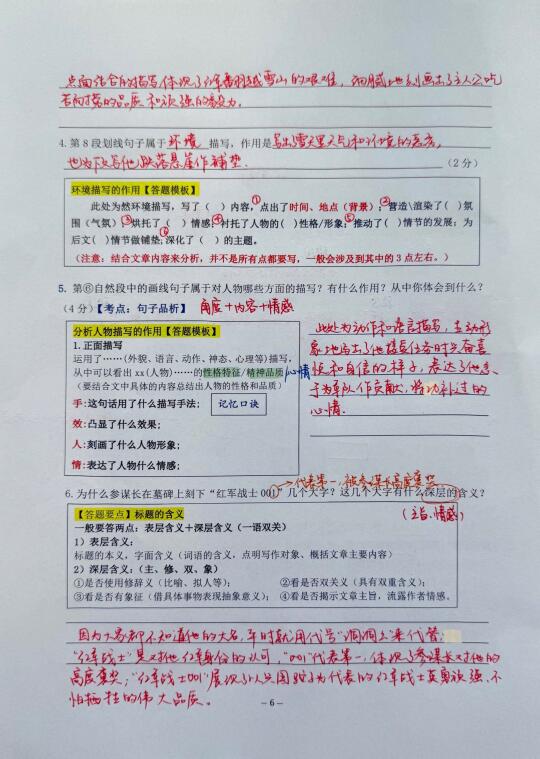 点面结合的描写体现了红军翻越雪山的艰难，细腻地刻画出了主人公吃
苦耐劳的品质和顽强的毅力。
4. 第 8 段划线句子属于 环境 描写，作用是 写出了雪天里天气和环境的恶劣，
也为下文写他跌落悬崖作铺垫。（2 分）
环境描写的作用【答题模板】
此处为然环境描写，写了（ ）内容，①点出了时间、地点（背景）；②营造\渲染了（ ）氛
围（气氛）；③烘托了（ ）情感；④衬托了人物的（ ）性格/形象；⑤推动了（ ）情节的发展；为
后文（ ）情节做铺垫；⑥深化了（ ）的主题。
（注意：结合文章内容来分析，并不是所有点都要写，一般会涉及到其中的 3 点左右。）
5. 第⑥自然段中的画线句子属于对人物哪些方面的描写？有什么作用？从中你体会到什么？
（4 分）【考点：句子品析】 角度+内容+情感
分析人物描写的作用【答题模板】
1. 正面描写
运用了……(外貌、语言、动作、神态、心理等)描写，
从中可以看出 xx(人物)……的性格特征/精神品质/心情
（要结合文中具体的内容总结出人物的性格和品质）
手:这句话用了什么描写手法；
记忆口诀
效:凸显了什么效果；
人:刻画了什么人物形象；
情:表达了人物什么情感；
此处为动作和语言描写，生动形
象地写出了他接受任务时兴奋喜
悦和自信的样子，表达了他
于为军队作贡献，将功补过的
心情。
→代表第一，被参谋长高度赞赏
6. 为什么参谋长在墓碑上刻下“红军战士 001”几个大字？这几个大字有什么深层的含义？
（主旨、情感）
【答题要点】标题的含义
一般要答两点：表层含义＋深层含义（一语双关）
1）表层含义：
标题的本义，字面含义（词语的含义，点明写作对象、概括文章主要内容）
2）深层含义：(主、修、双、象)
①是否使用修辞义（比喻、拟人等）； ②看是否双关义（具有双重含义）；
③看是否有象征（借具体事物表现抽象意义）； ④看是否揭示文章主旨，流露作者情感。
因为大家都不知道他的大名，平时就用代号“洞洞幺”来代替；
“红军战士”是对他红军身份的认可，“001”代表第一，体现了参谋长对他的
高度赞赏；“红军战士001”展现了以为代表的红军战士英勇顽强、不
怕牺牲的伟大品质。
– 6 –